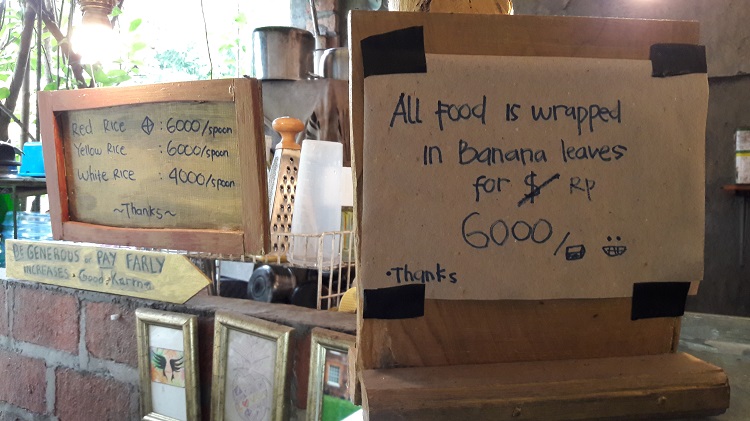 Red Rice : 6000/spoon
Yellow Rice : 6000/spoon
White Rice : 4000/spoon
~Thanks~
BE GENEROUS & PAY FAIRLY
INCREASES · Good · Karma
All Food is wrapped
in Banana leaves
for $ Rp
6000/
·Thanks